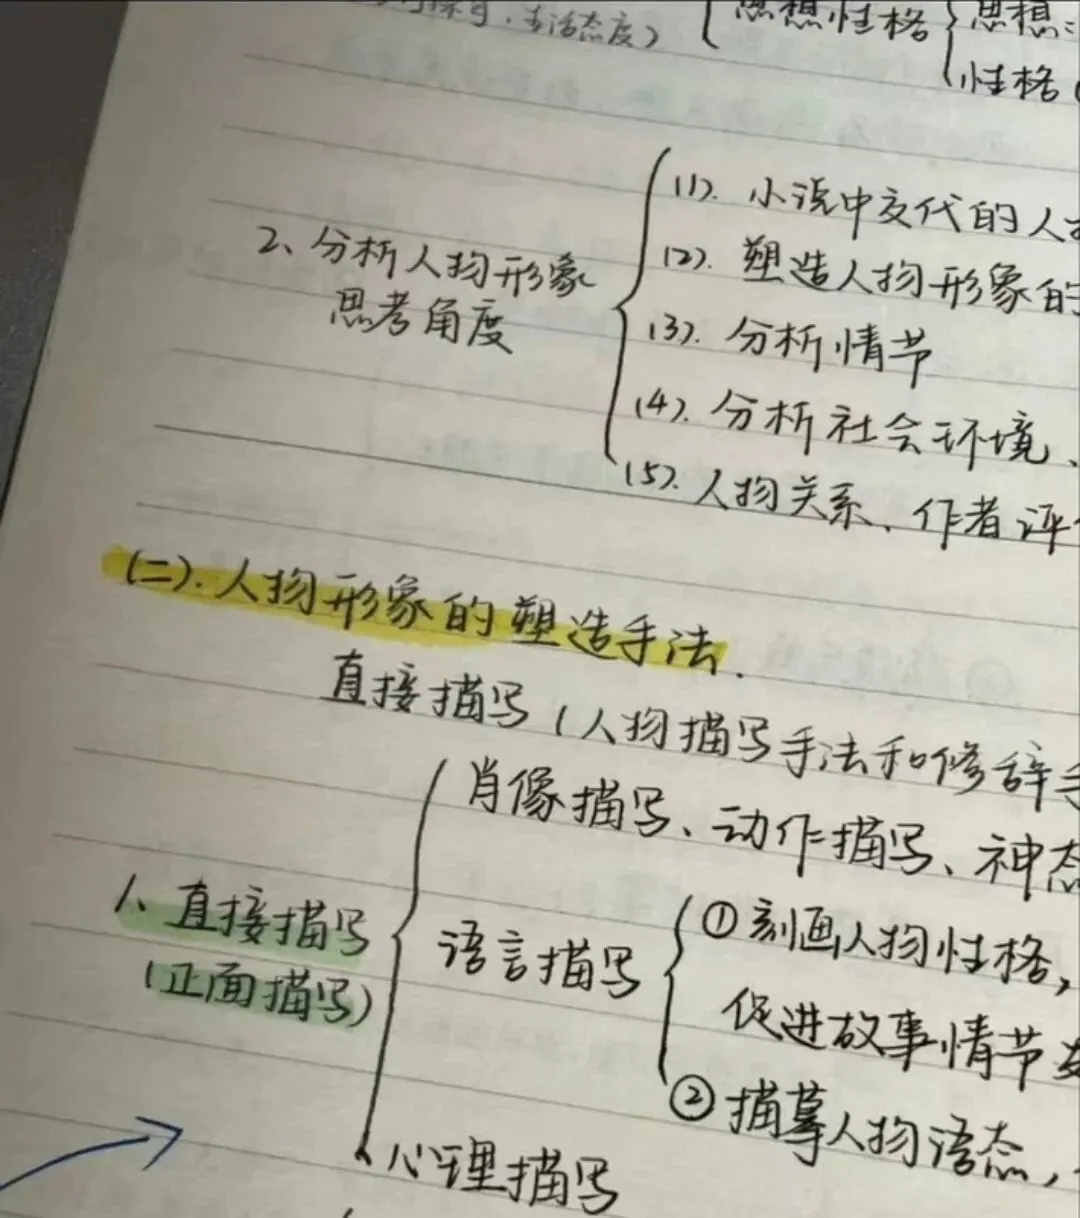 生活态度) { 思想性格 { 思想:
性格(
2、分析人物形象
思考角度
(1). 小说中交代的人
(2). 塑造人物形象的
(3). 分析情节
(4). 分析社会环境、
(5). 人物关系、作者评
(二). 人物形象的塑造手法.
直接描写(人物描写手法和修辞手
肖像描写、动作描写、神态
1、直接描写
(正面描写)
语言描写
①刻画人物性格,
促进故事情节发
②描摹人物语态,
心理描写